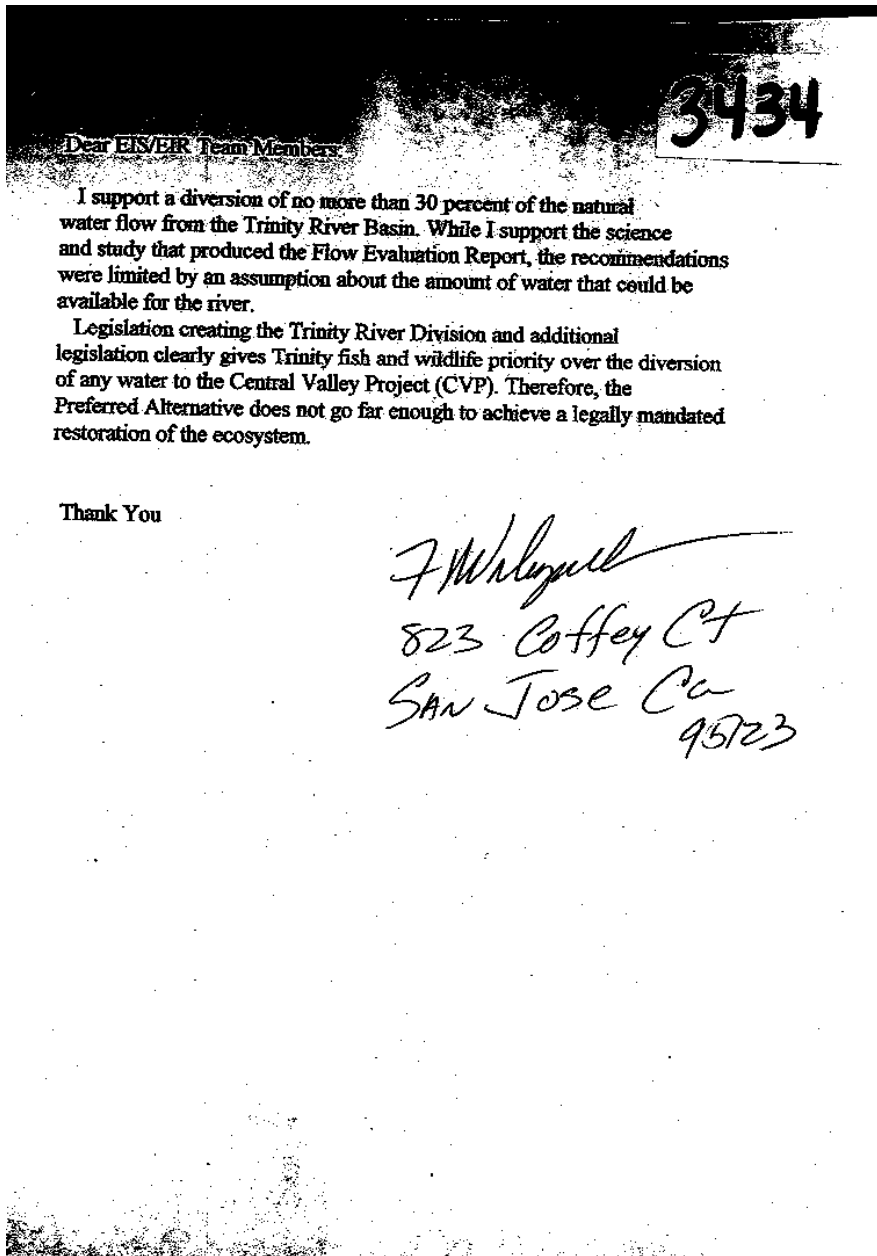 3434
Dear EIS/EIR Team Members:
I support a diversion of no more than 30 percent of the natural
water flow from the Trinity River Basin. While I support the science
and study that produced the Flow Evaluation Report, the recommendations
were limited by an assumption about the amount of water that could be
available for the river.
Legislation creating the Trinity River Division and additional
legislation clearly gives Trinity fish and wildlife priority over the diversion
of any water to the Central Valley Project (CVP). Therefore, the
Preferred Alternative does not go far enough to achieve a legally mandated
restoration of the ecosystem.
Thank You
823 Coffey Ct
SAN JOSE Ca
95123